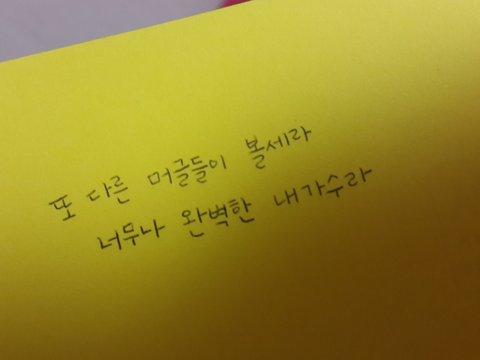 또 다른 머글들이 볼세라
너무나 완벽한 내가수라